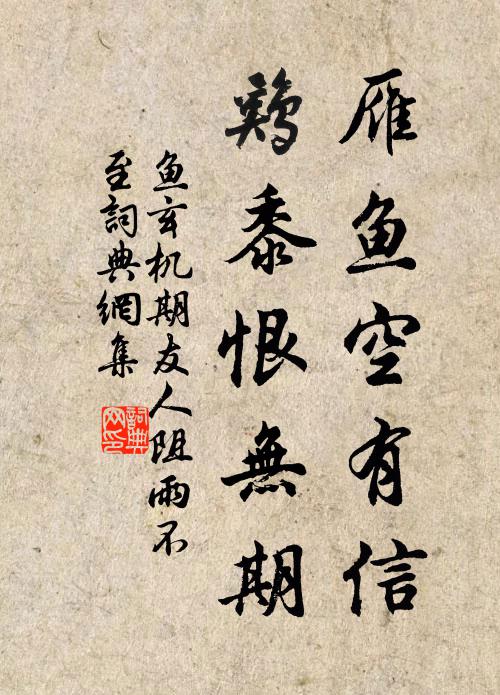 雁鱼空有信
鷄黍恨無期
鱼玄机期友人阻雨不
至詞典網集
詞典
网印